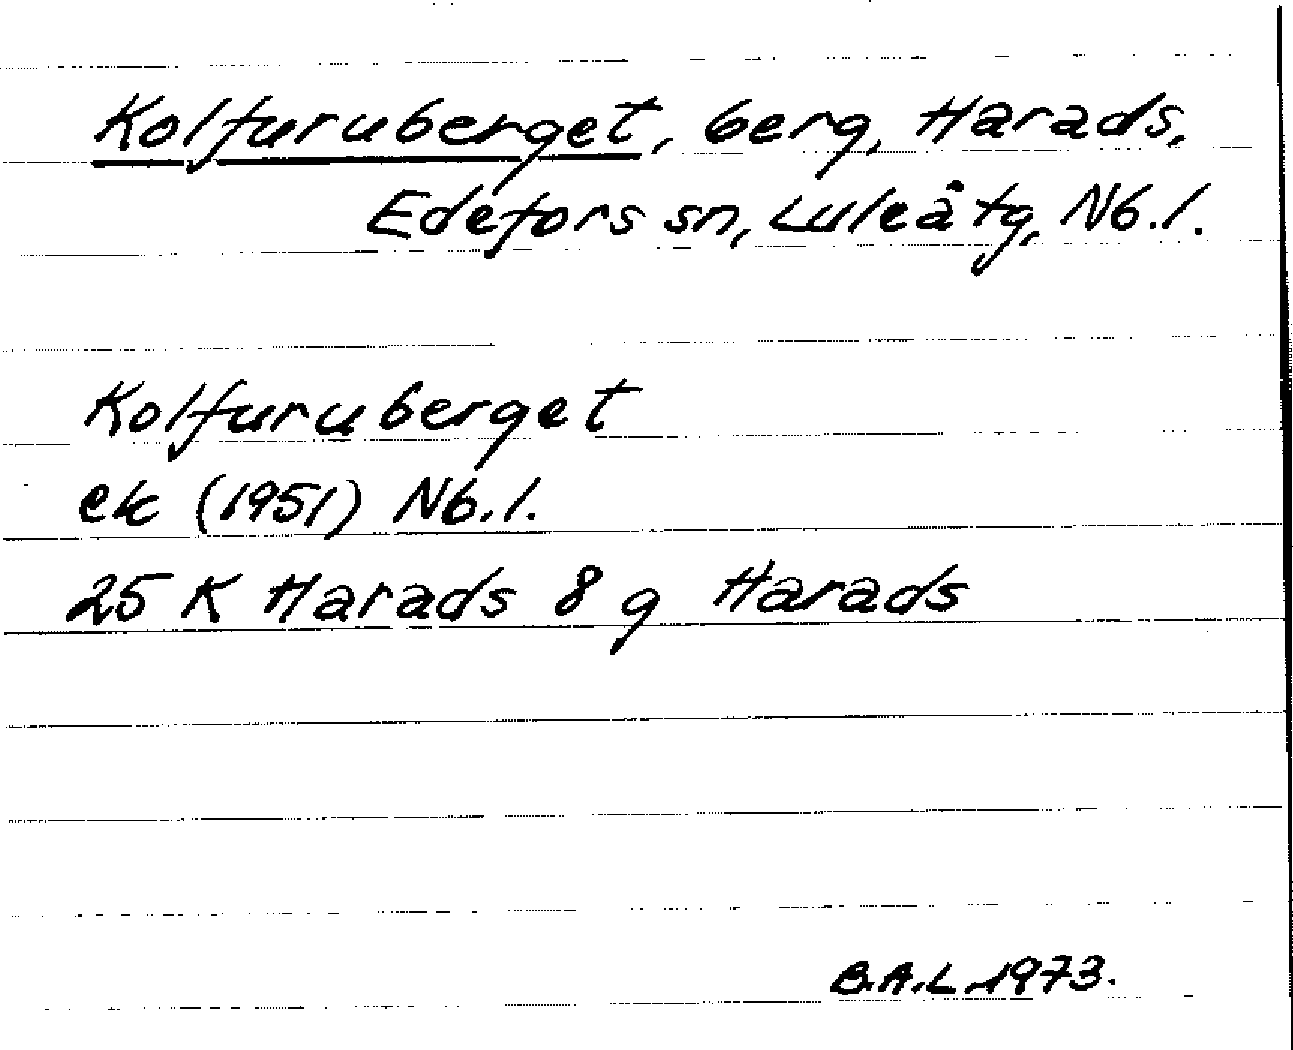 Kolfuruberget, berg, Harads,
Edefors sn, Luleå tg, Nb.l.
Kolfuruberget
ek (1951) Nb.l.
25 K Harads 8 g Harads
B.A.L. 1973.